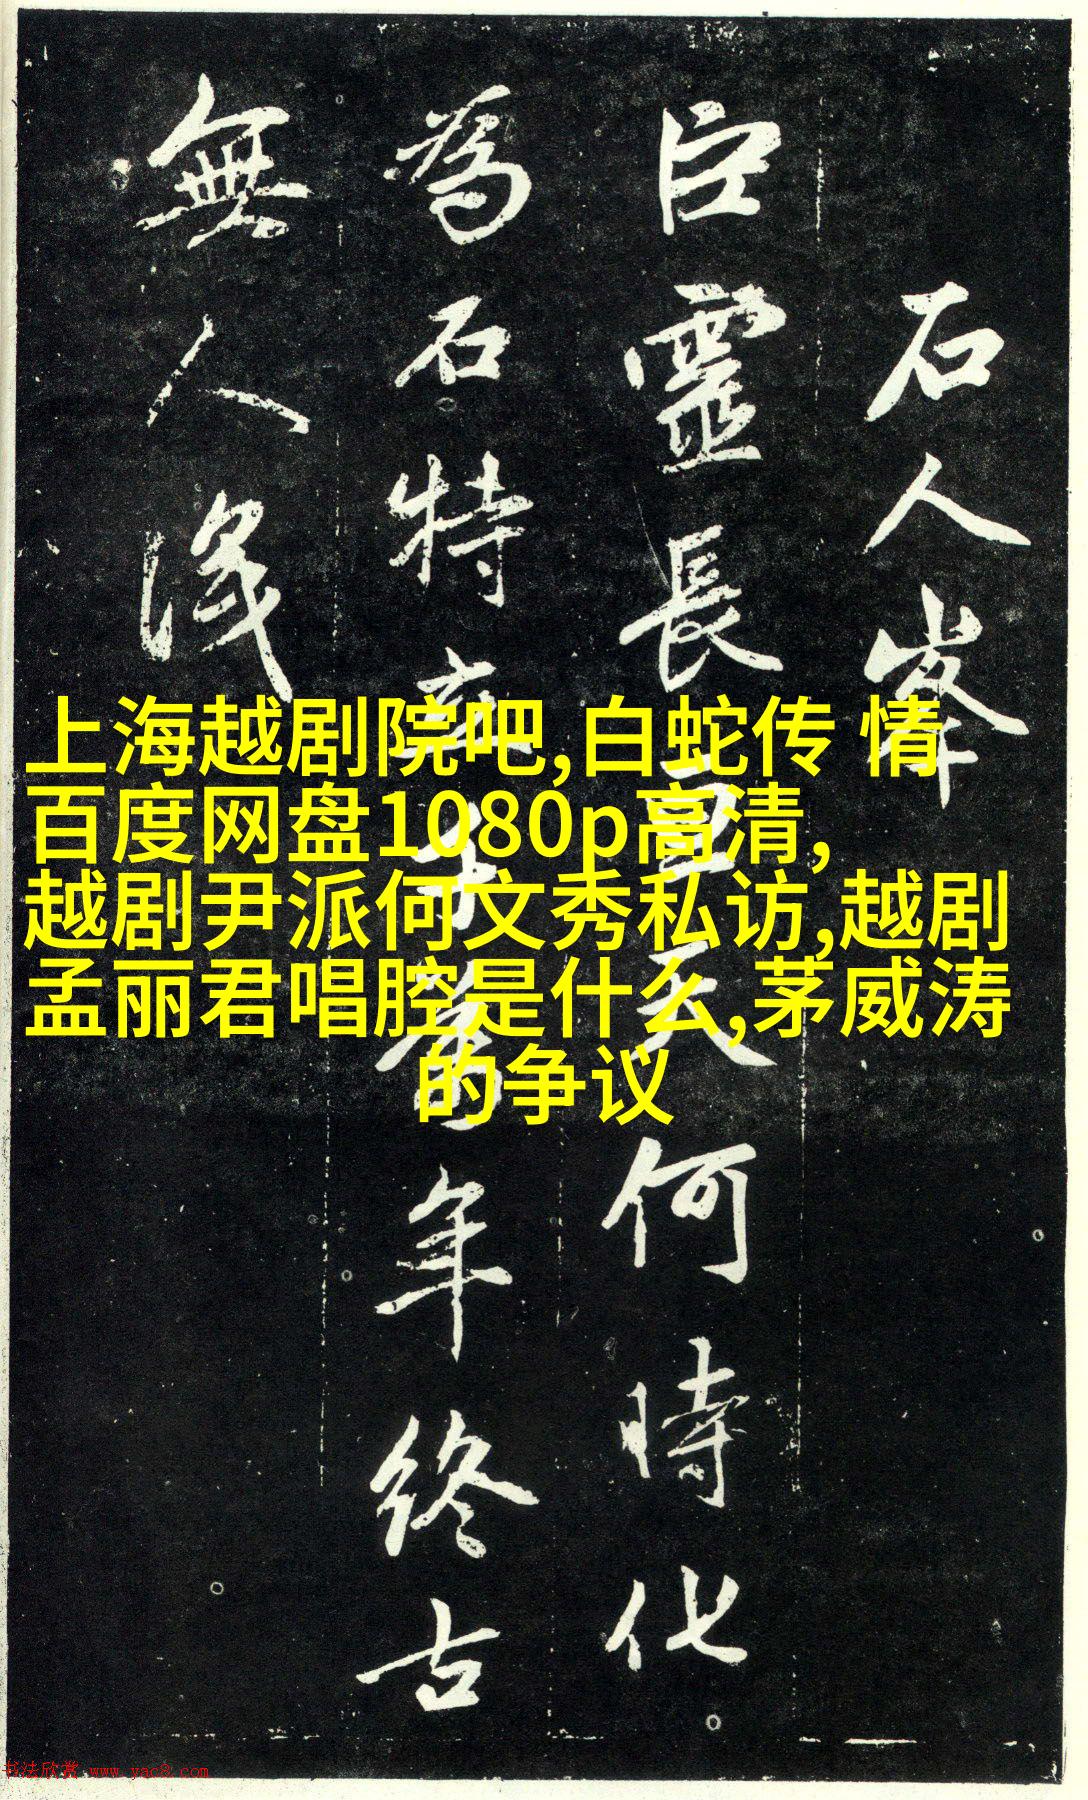 石人峯
巨靈長天何時化
為石特年終古
無人
上海越剧院吧,白蛇传 情
百度网盘1080p高清,
越剧尹派何文秀私访,越剧
孟丽君唱腔是什么,茅威涛
的争议
书法欣赏 www.yac8.com